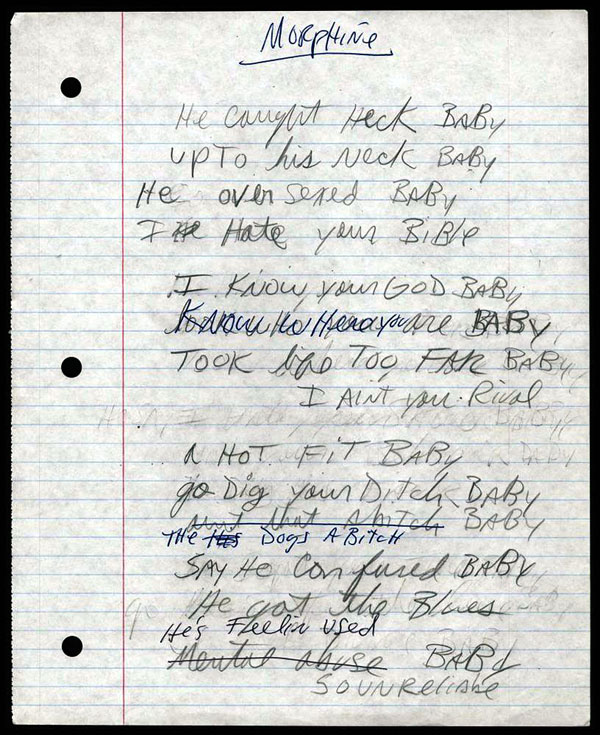 MORPHiNe
He caught Heck BABy
upTo his Neck BABy
He over sexed BABy
I He Hate your BiBle
I Know your GOD BABy
Know Hero you are BABy
TOOK lips Too FAR BABy
I Aint your Rival
A HoT FiT BABy
go Dig your Ditch BABy
aint that A bitch BABy
THe His Dogs A BitcH
SAy He Confused BABy
He got the Blues
He's Feelin Used
Mental abuse BABy
SO UNReliable